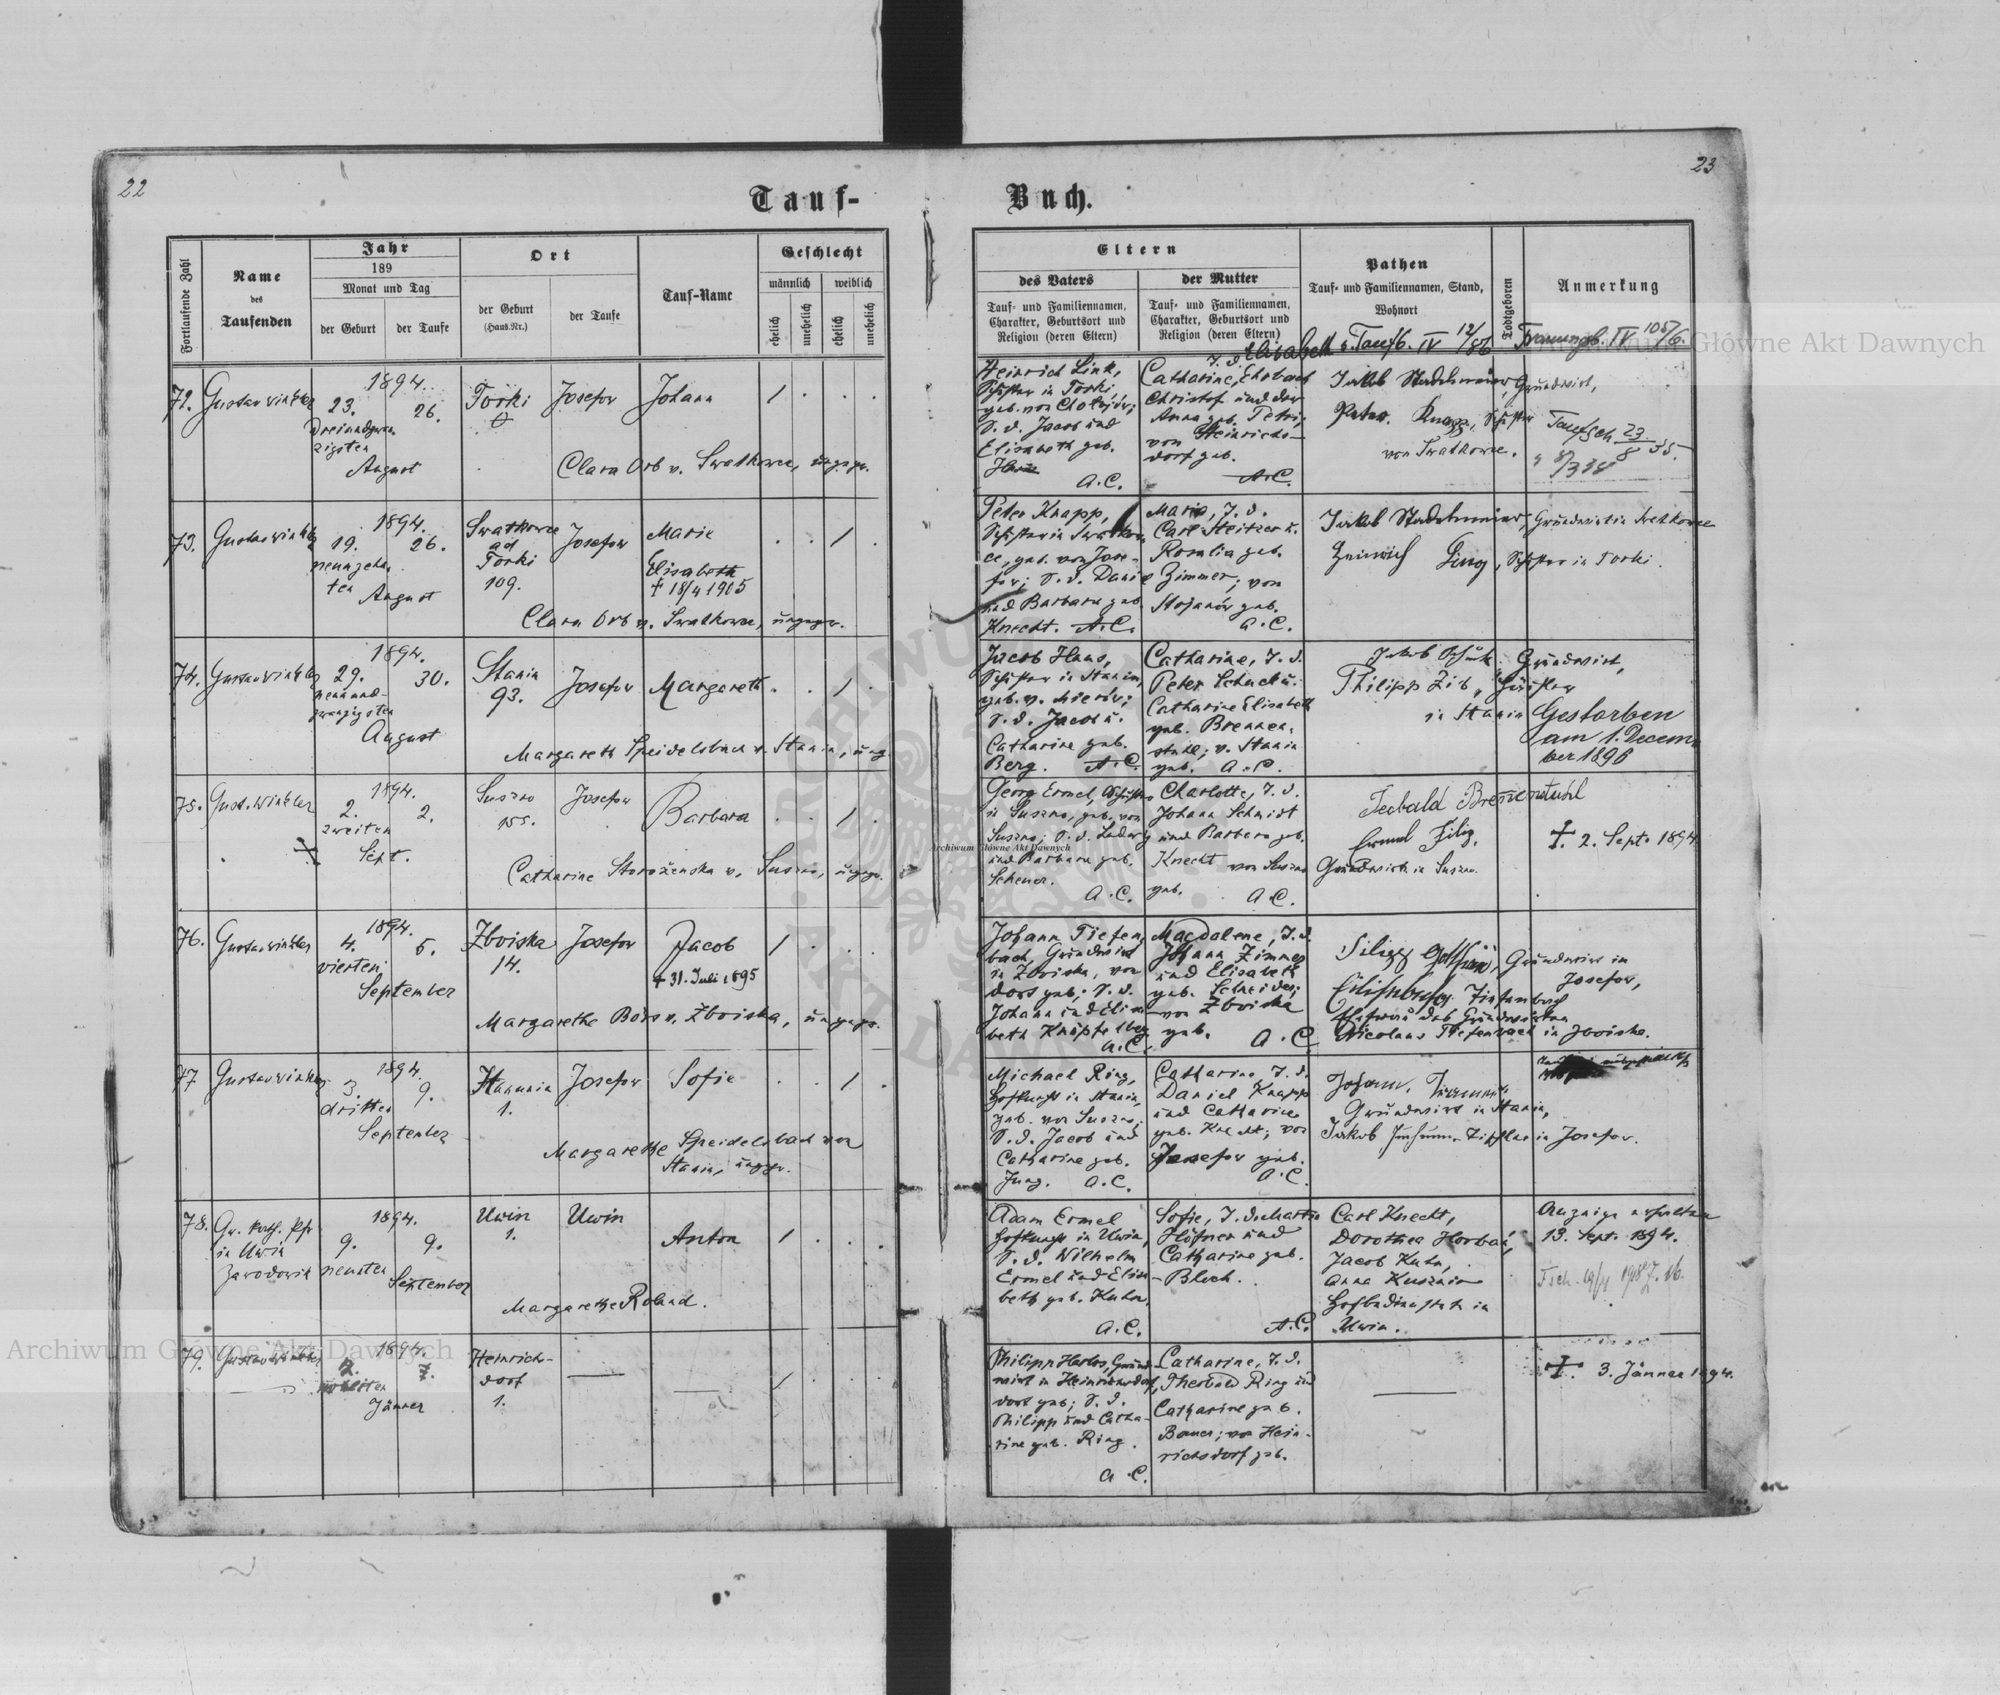 22
23
Tauf-
Buch.
Fortlaufende Zahl
Name
des
Taufenden
Jahr
189
Monat und Tag
der Geburt
der Taufe
Ort
der Geburt
(Haus-Nr.)
der Taufe
Tauf-Name
Geschlecht
männlich
weiblich
ehelich
unehelich
ehelich
unehelich
Eltern
des Vaters
Tauf- und Familiennamen,
Charakter, Geburtsort und
Religion (deren Eltern)
der Mutter
Tauf- und Familiennamen,
Charakter, Geburtsort und
Religion (deren Eltern)
Pathen
Tauf- und Familiennamen, Stand,
Wohnort
Todtgeboren
Anmerkung
Elisabeth s. Taufb. IV 12/86
Trauungsb. IV 105/6.
72. Gustav Winkler
1894.
23. 26.
Dreiundzwan
zigsten
August
Torki
Josefow
Johann
1 . . .
Clara Orb v. Swatkowce, ungepr.
Heinrich Link,
in Torki,
geb. von Chotojów;
S. d. Jacob und
Elisabeth geb.
A. C.
Catharine, T. d.
Christof und der
Anna geb. Petri;
von Heinrichs-
dorf geb.
A. C.
Jakob Stadelmeier, Grundwirt,
Peter Knapp,
von Swatkowce.
Taufsch. 23/8 35.
73. Gustav Winkler
1894.
19. 26.
neunzehn
ten
August
Swatkowce
ad
Torki
109.
Josefow
Marie
Elisabeth
+ 18/4 1905
. . 1 .
Clara Orb v. Swatkowce, ungepr.
Peter Knapp,
und Barbara geb.
Knecht. A. C.
Maria, T. d.
Carl Steitzer u.
Rosalia geb.
Zimmer; von
Stojanów geb.
A. C.
Jakob Stadelmeier, Grundwirt in Swatkowce
Heinrich Ling, in Torki.
74. Gustav Winkler
1894.
29. 30.
neunund-
zwanzigsten
August
Stanin
93.
Josefow
Margareth
. . 1 .
Margareth Speidelsbach v. Stanin, ung
Jacob Haas,
in Stanin,
geb. v. Mierów;
S. d. Jacob u.
Catharine geb.
Berg. A. C.
Catharine, T. d.
Peter Schuck u.
Catharine Elisabeth
geb. Brennen-
stuhl; v. Stanin
geb. A. C.
Jakob Schuk Grundwirt,
Philipp Zib,
in Stanin
Gestorben
am 1. Decem-
ber 1896
75. Gust. Winkler
1894.
2. 2.
zweiten
Sept.
Suszno
155.
Josefow
Barbara
. . 1 .
Catharine Storożenska v. Suszno, ungepr.
Georg Ermel,
in Suszno, geb. von
Suszno; S. d. Ludwig
und Barbara geb.
Scheuer.
A. C.
Charlotte, T. d.
Johann Schmidt
und Barbara geb.
Knecht von Suszno
geb. A. C.
Teobald Breñenstuhl
Grundwirte in Suszno.
+. 2. Sept. 1894
76. Gustav Winkler
1894.
4. 5.
vierten
September
Zboiska
14.
Josefow
Jacob
+ 31. Juli 1895
1 . . .
Margarethe Bois v. Zboiska, ungepr.
Johann Tiefen
bach, Grundwirt
in Zboiska, von
dort geb; S. d.
Johann und Elisa
beth Knüpfelberg
A. C.
Magdalene, T. d.
Johann Zimmer
und Elisabeth
geb. Schneider;
von Zboiska
geb. A. C.
Grundwirt in
Josefow,
Tiefenbach
Ehefrau des Grundwirten
Nicolaus Tiefenbach in Zboiska.
77 Gustav Winkler
1894.
3. 9.
dritten
September
Hanunin
1.
Josefow
Sofie
. . 1 .
Margarethe Speidelsbach von
Stanin, ungepr.
Michael Ring,
Hofknecht in Stanin,
geb. von Suszno;
S. d. Jacob und
Catharine geb.
Jung. A. C.
Catharine, T. d.
Daniel Knapp
und Catharine
geb. Knecht; von
Josefow geb.
A. C.
Johann
Grundwirt in Stanin,
Jakob in Josefow.
78. Gr. kath. Pfr
in Uwin
Zawodowik
1894.
9. 9.
neunten
September
Uwin
1.
Uwin
Anton
1 . . .
Margarethe Roland.
Adam Ermel
Hofknecht in Uwin,
S. d. Wilhelm
Ermel und Elisa
beth geb. Kuhn.
A. C.
Sofie, T. d. Martin
Höfner und
Catharine geb.
Bloch.
A. C.
Carl Knecht,
Dorothea Horbań,
Jacob Kuhn,
Anna Kusznir
Hofbedienstete in
Uwin.
Anzeige erhalten
13. Sept. 1894.
79. Gustav Winkler
1894.
2. 7.
zweiten
Jänner
Heinrich-
dorf
1.
1 . . .
Philipp Harlos, Grund
wirt in Heinrichsdorf,
dort geb; S. d.
Philipp und Catha-
rine geb. Ring.
A. C.
Catharine, T. d.
Theobald Ring und
Catharine geb.
Bauer; von Hein-
richsdorf geb.
+. 3. Jänner 1894.
Archiwum Główne Akt Dawnych
Archiwum Główne Akt Dawnych
Archiwum Główne Akt Dawnych